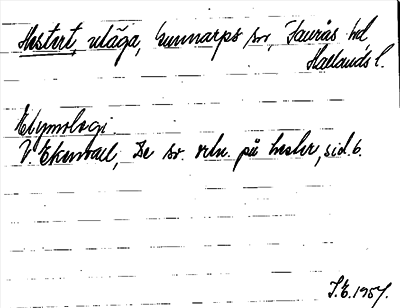 Hestert, utäga, Gunnarps sn, Faurås hd
Hallands l.
Etymologi.
V. Ekenvall, De sv. ortn. på hester, sid. 6.
S.E. 1957.